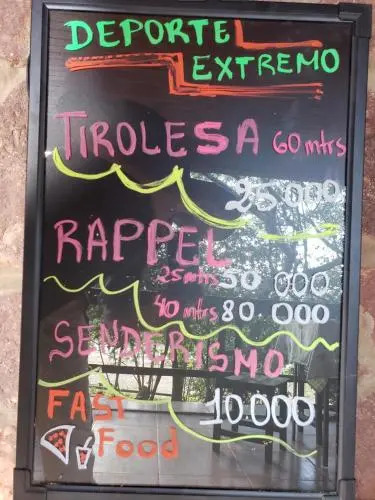 DEPORTE
EXTREMO
TIROLESA 60 mtrs
25.000
RAPPEL
25 mtrs 50 000
40 mtrs 80.000
SENDERISMO
10.000
FAST
Food